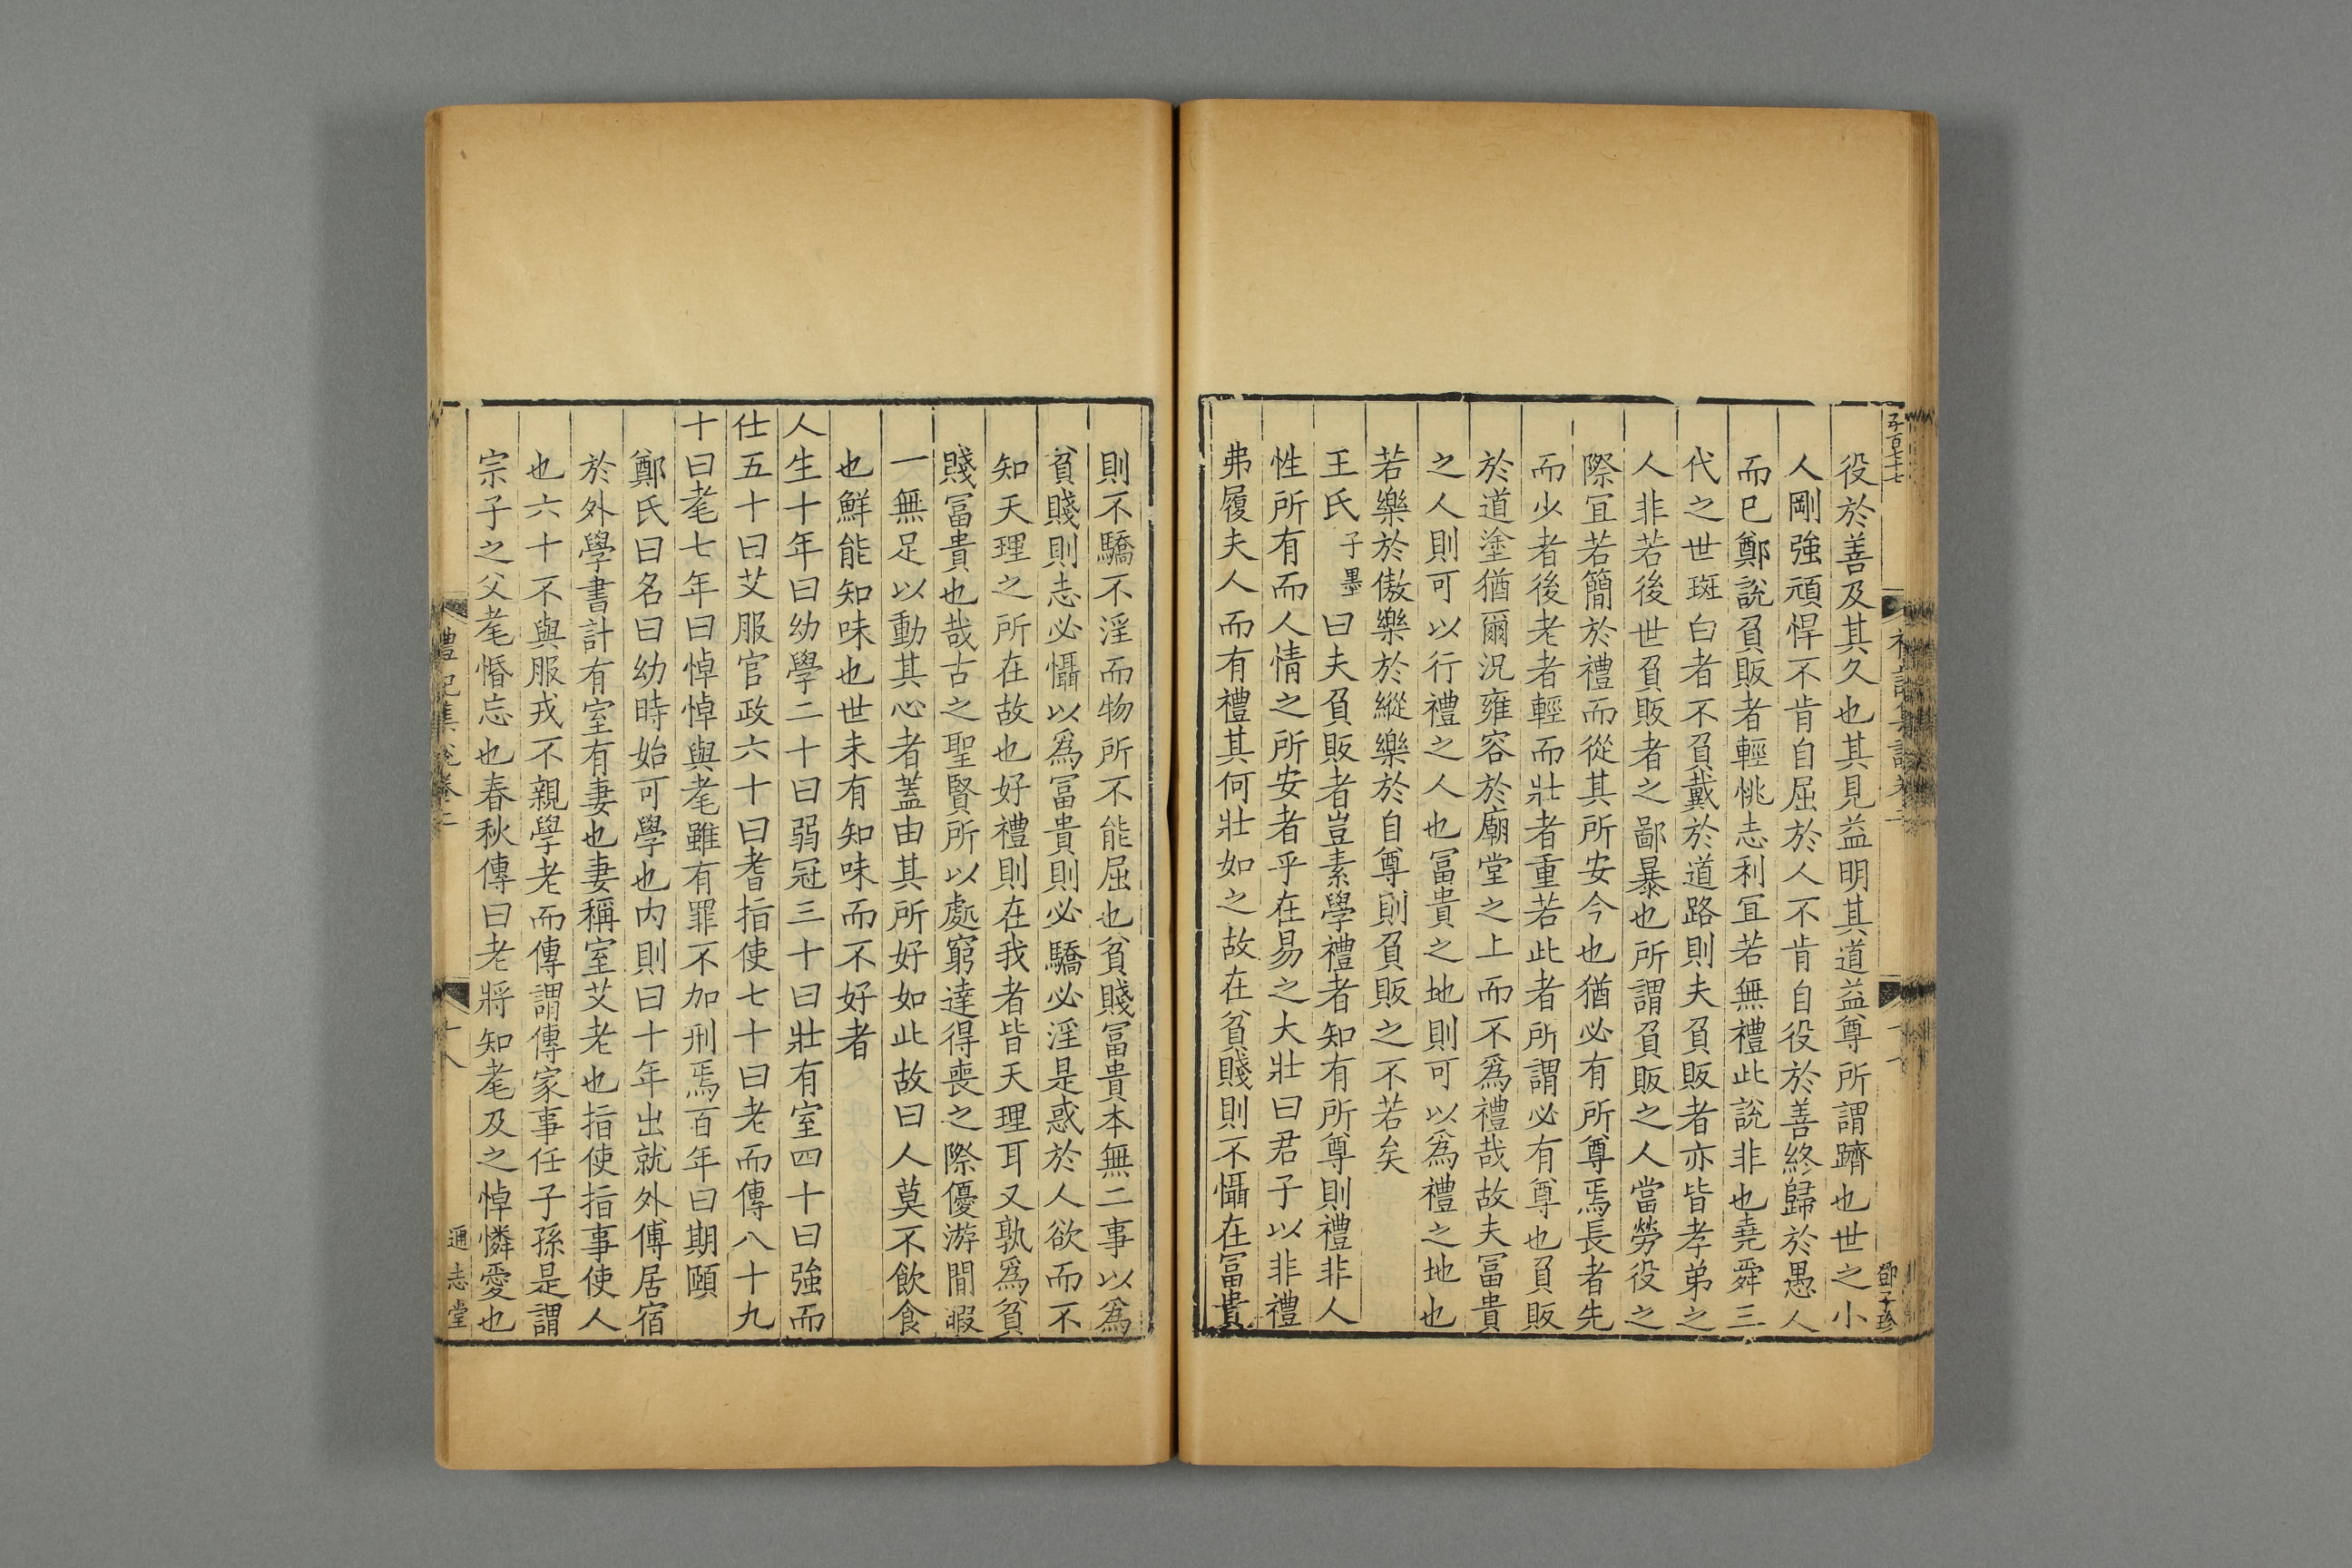 五百七十七
鄧子珍
役於善及其久也其見益明其道益尊所謂躋也世之小
人剛強頑悍不肯自屈於人不肯自役於善終歸於愚人
而已鄭說負販者輕恌志利冝若無禮此說非也堯舜三
代之世斑白者不負戴於道路則夫負販者亦皆孝弟之
人非若後世負販者之鄙暴也所謂負販之人當勞役之
際冝若簡於禮而從其所安今也猶必有所尊焉長者先
而少者後老者輕而壯者重若此者所謂必有尊也負販
於道塗猶爾況雍容於廟堂之上而不爲禮哉故夫冨貴
之人則可以行禮之人也冨貴之地則可以爲禮之地也
若樂於傲樂於縱樂於自尊則負販之不若矣
王氏子墨曰夫負販者豈素學禮者知有所尊則禮非人
性所有而人情之所安者乎在易之大壯曰君子以非禮
弗履夫人而有禮其何壯如之故在貧賤則不懾在冨貴
則不驕不淫而物所不能屈也貧賤冨貴本無二事以爲
貧賤則志必懾以爲冨貴則必驕必淫是惑於人欲而不
知天理之所在故也好禮則在我者皆天理耳又孰爲貧
賤冨貴也哉古之聖賢所以處窮達得喪之際優游閒暇
一無足以動其心者蓋由其所好如此故曰人莫不飲食
也鮮能知味也世未有知味而不好者
人生十年曰幼學二十曰弱冠三十曰壯有室四十曰強而
仕五十曰艾服官政六十曰耆指使七十曰老而傳八十九
十曰耄七年曰悼悼與耄雖有罪不加刑焉百年曰期頤
鄭氏曰名曰幼時始可學也内則曰十年出就外傅居宿
於外學書計有室有妻也妻稱室艾老也指使指事使人
也六十不與服戎不親學老而傳謂傳家事任子孫是謂
宗子之父耄惛忘也春秋傳曰老將知耄及之悼憐愛也
禮記集說卷二
十八
通志堂